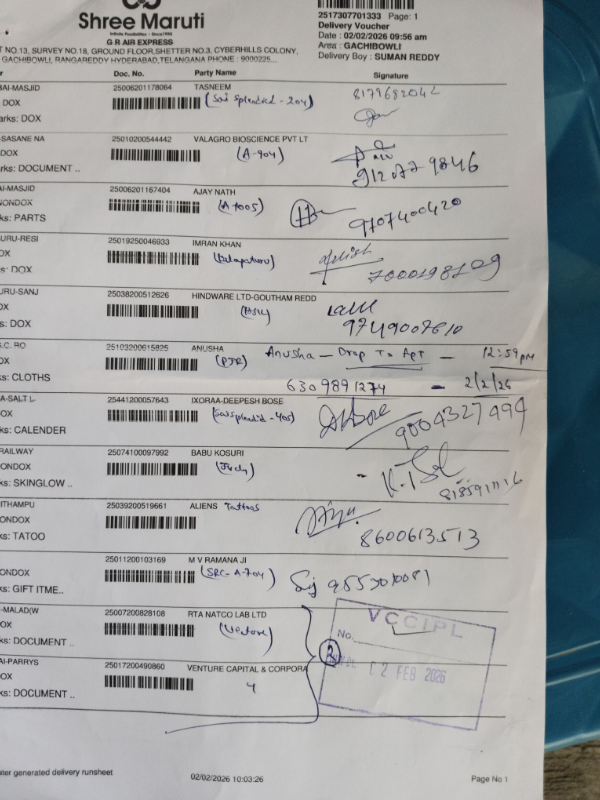 Shree Maruti
G R AIR EXPRESS
2517307701333 Page: 1
Delivery Voucher
Date : 02/02/2026 09:56 am
Area : GACHIBOWLI
Delivery Boy : SUMAN REDDY
T NO.13, SURVEY NO.18, GROUND FLOOR,SHETTER NO.3, CYBERHILLS COLONY,
GACHIBOWLI, RANGAREDDY HYDERABAD,TELANGANA PHONE : 9000225...
Doc. No. Party Name Signature
AI-MASJID 25006201178064 TASNEEM 8179682042
DOX (Sai Splendid - 204)
arks: DOX
-SASANE NA 25010200544442 VALAGRO BIOSCIENCE PVT LT
DOX (A-904)
ks: DOCUMENT .. 9120779846
AI-MASJID 25006201167404 AJAY NATH
NONDOX (A-1005) 9707400420
ks: PARTS
URU-RESI 25019250046933 IMRAN KHAN
OX
s: DOX 7000198109
URU-SANJ 25038200512626 HINDWARE LTD-GOUTHAM REDD
OX
s: DOX
S.C. RO 25103200615825 ANUSHA Anusha - Drop To Apt - 12:59 pm
OX (PJR)
ks: CLOTHS 6309891274 - 2/2/26
A-SALT L- 25441200057643 IXORAA-DEEPESH BOSE
DOX (Sai splendid - 405) 9004327999
ks: CALENDER
RAILWAY 25074100097992 BABU KOSURI
ONDOX (Judy)
ks: SKINGLOW ..
ITHAMPU 25039200519661 ALIENS Tattoos
ONDOX 8600613513
s: TATOO
25011200103169 M V RAMANA JI
ONDOX (SRC-A-704) 9553010081
ks: GIFT ITME..
-MALAD(W 25007200828108 RTA NATCO LAB LTD
DOX (Venture)
ks: DOCUMENT ..
VCCIPL
No.
02 FEB 2026
2
AI-PARRYS 25017200490860 VENTURE CAPITAL & CORPORA
DOX 4
ks: DOCUMENT ..
ter generated delivery runsheet 02/02/2026 10:03:26 Page No 1